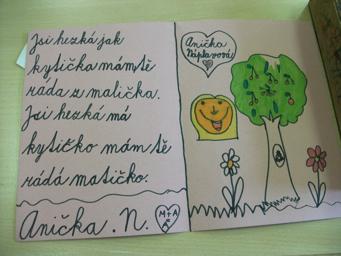 Jsi hezká jak
kytička mám tě
ráda z malička.
Jsi hezká má
kytičko mám tě
rádá matičko.
Anička . N.
M+A
Anička
Náplavová
A